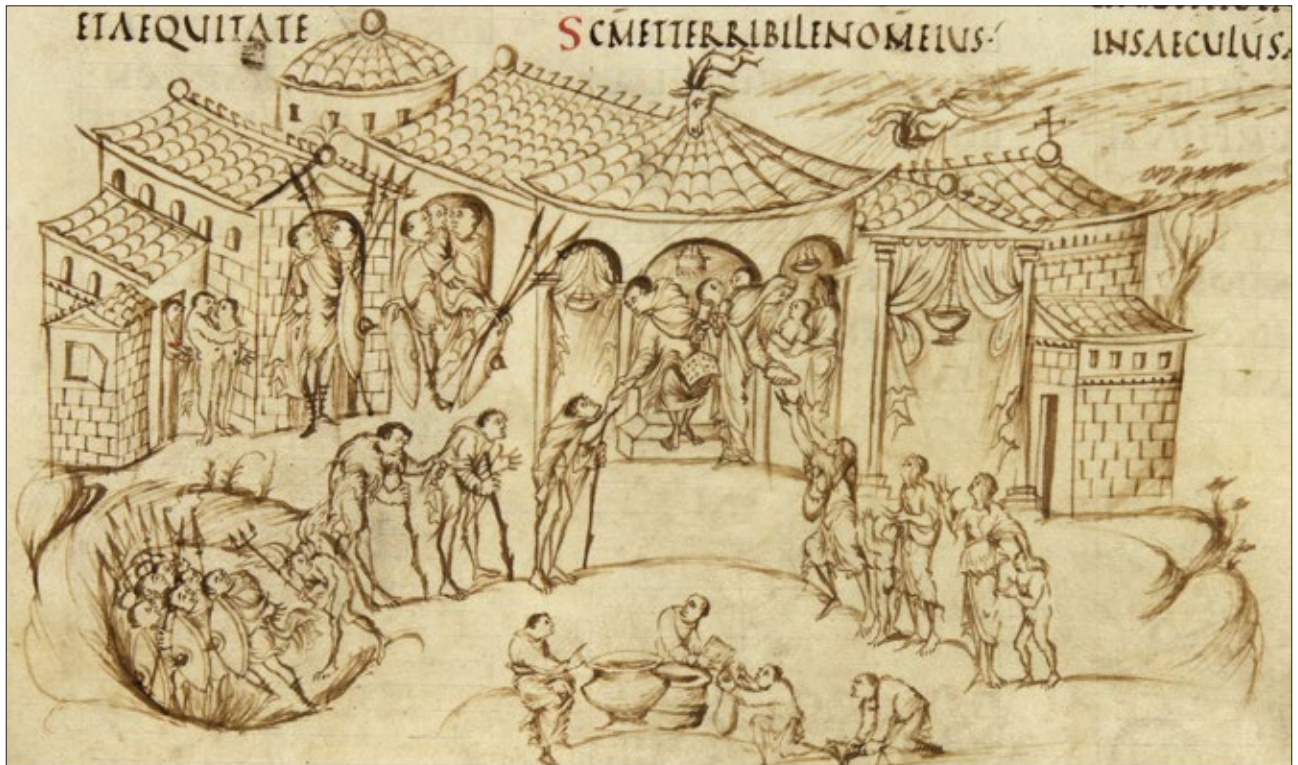 ETAEQUITATE
SCMETTERRIBILENOMEIUS·
INSAECULUSA